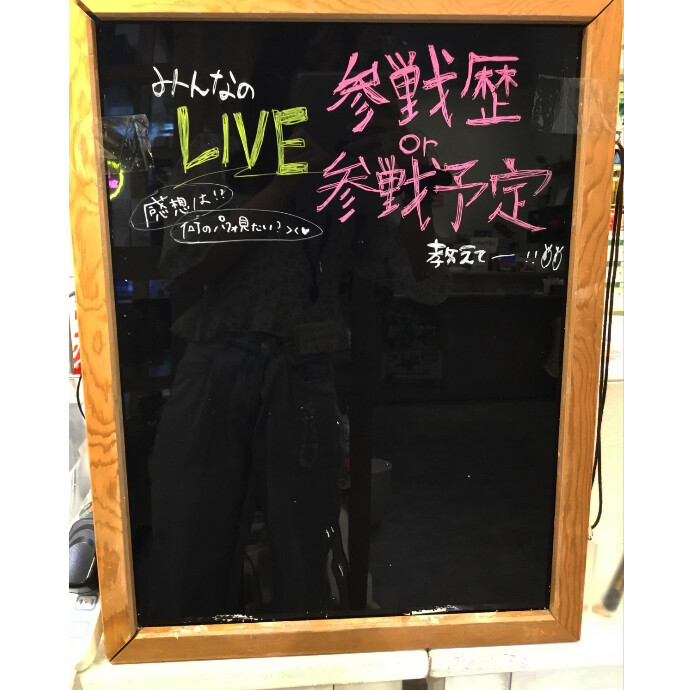 みんなの
LIVE
参戦歴
or
参戦予定
感想は!?
何のパフォ見たい?><♥
教えてー!!